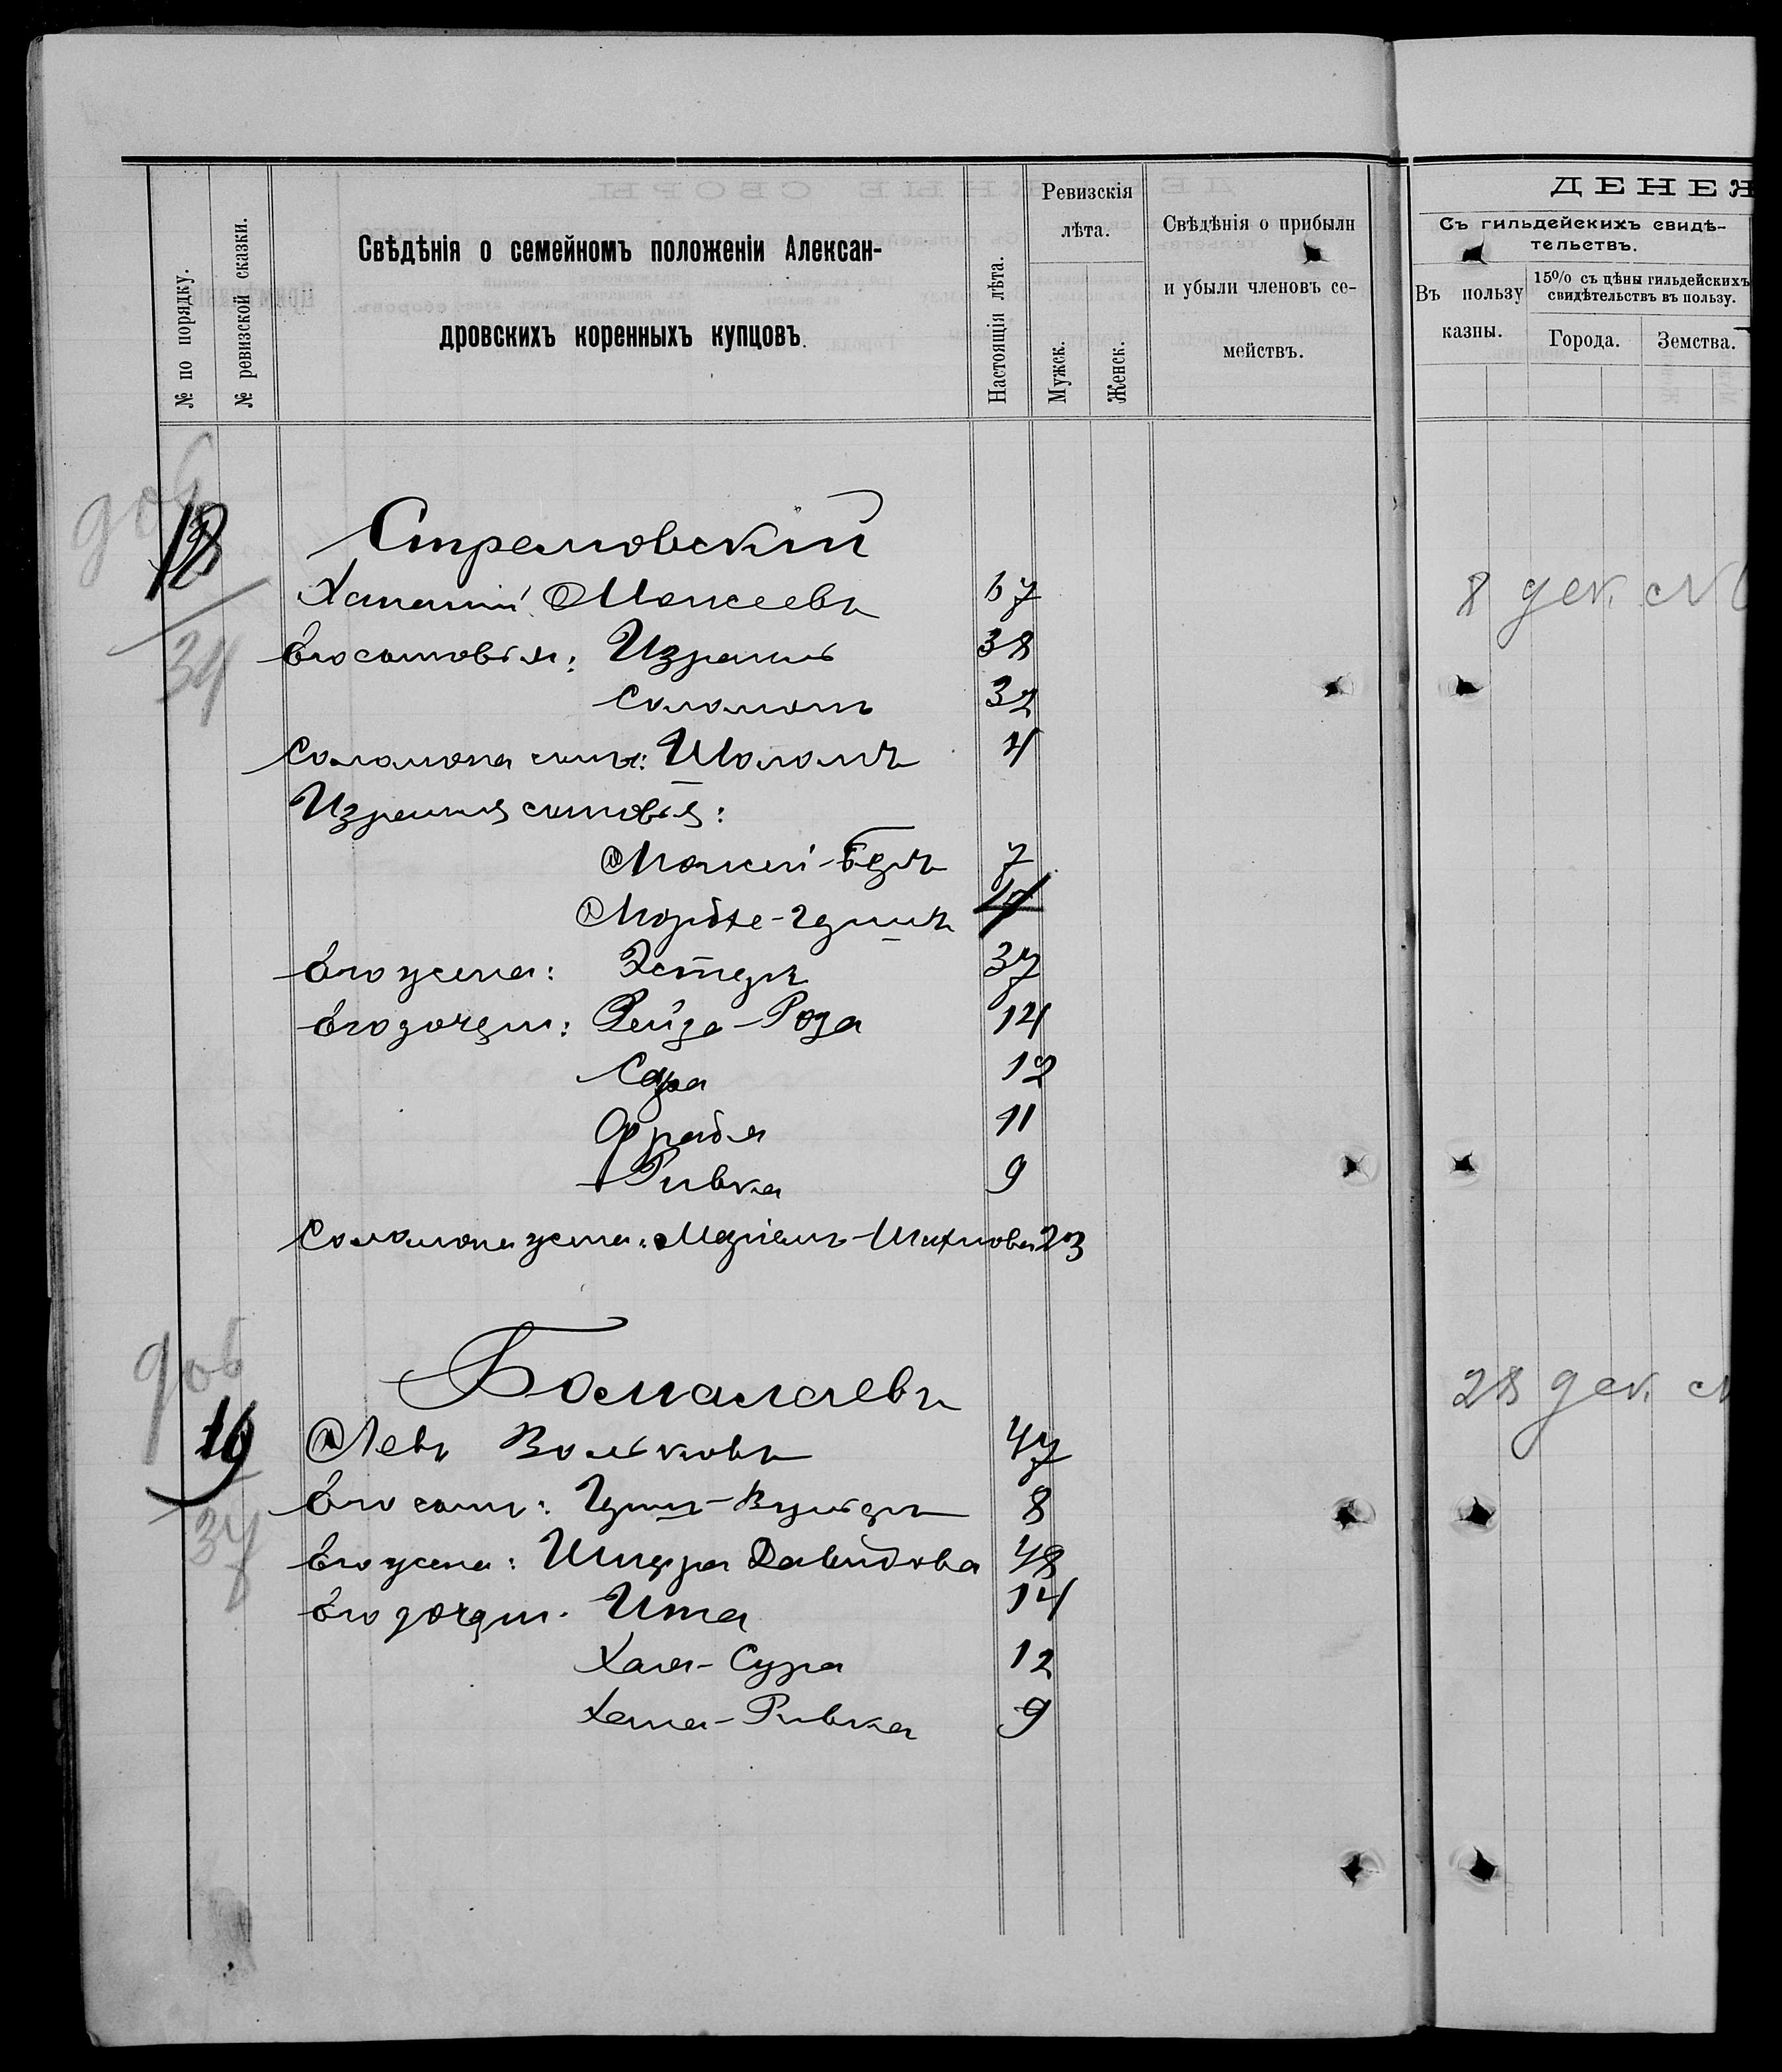 № по порядку.
№ ревизской сказки.
Свѣдѣнія о семейномъ положеніи Алексан-
дровскихъ коренныхъ купцовъ.
Настоящія лѣта.
Ревизскія
лѣта.
Мужск.
Женск.
Свѣдѣнія о прибыли
и убыли членовъ се-
мействъ.
ДЕНЕЖ
Съ гильдейскихъ свидѣ-
тельствъ.
Въ пользу
казны.
15% съ цѣны гильдейскихъ
свидѣтельствъ въ пользу.
Города.
Земства.
дов
18
34
8 дек. №
Хананій Моисеевъ 67
Его сыновья: Израиль 38
Соломонъ 32
Соломона сынъ: Шоломъ 4
Израиля сыновья:
Моисей-Беръ 7
Мордхе-Гершъ
Его жена: Эстеръ 37
Его дочери: Рейза-Роза 14
Сура 12
Фрейдя 11
Ривка 9
Соломона жена: Маріемъ 23
дов
19
37
28 дек
Левъ Вольковъ 47
Его сынъ: Гершъ-Вульфъ 8
Его жена: Шифра Давидова 48
Его дочери: Ита 14
Хая-Сура 12
Хана-Ривка 9